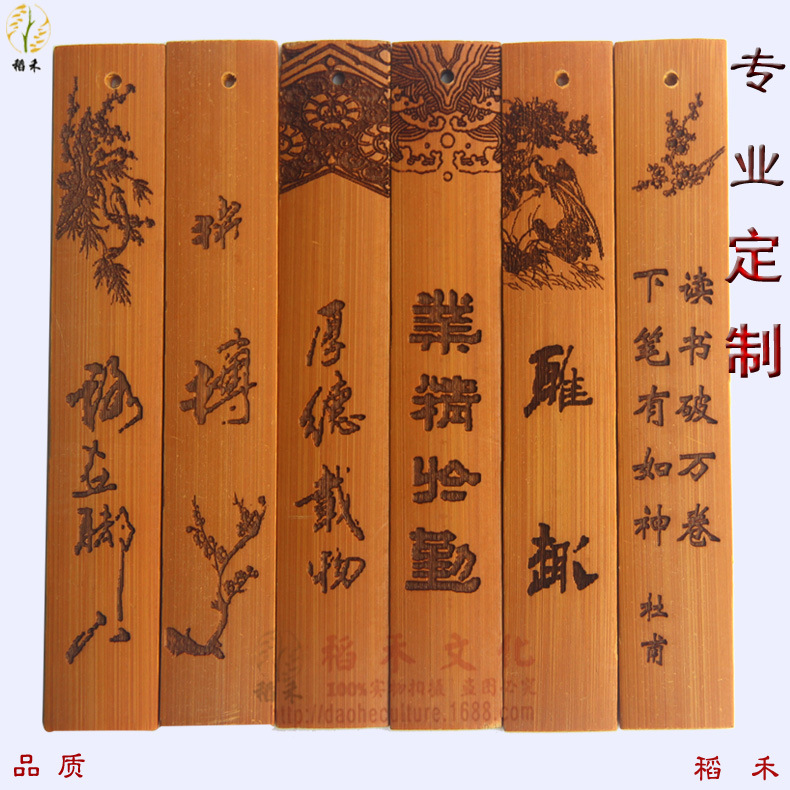 稻禾
专业定制
路在脚下
拼搏
厚德载物
業精於勤
雅趣
读书破万卷
下笔有如神
杜甫
稻禾文化
稻禾
100%实物拍摄 盗图必究
http://daoheculture.1688.com
品质
稻禾